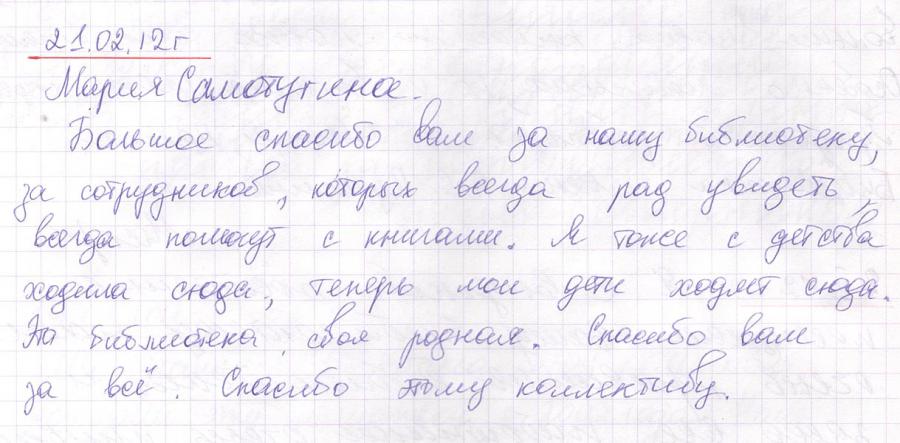 21.02.12г
Мария Самотугина.
Большое спасибо вам за нашу библиотеку,
за сотрудников, которых всегда рад увидеть,
всегда помогут с книгами. Я тоже с детства
ходила сюда, теперь мои дети ходят сюда.
Эта библиотека своя родная. Спасибо вам
за всё. Спасибо этому коллективу.